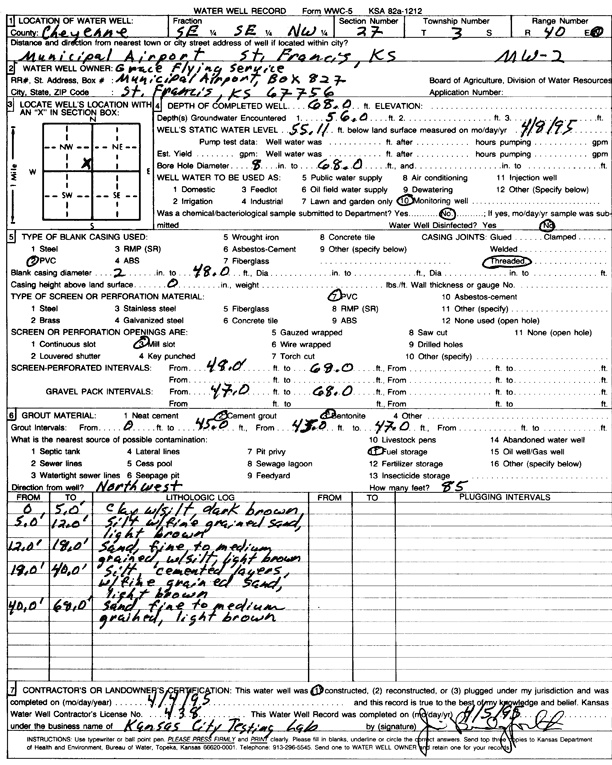 WATER WELL RECORD Form WWC-5 KSA 82a-1212
1 LOCATION OF WATER WELL: Fraction Section Number Township Number Range Number
County: Cheyenne SE ¼ SE ¼ NW ¼ 27 T 3 S R 40 E/W
Distance and direction from nearest town or city street address of well if located within city?
Municipal Airport St. Francis, KS MW-2
2 WATER WELL OWNER: Grace Flying Service
RR#, St. Address, Box # : Municipal Airport, Box 827 Board of Agriculture, Division of Water Resources
City, State, ZIP Code : St. Francis, KS 67756 Application Number:
3 LOCATE WELL'S LOCATION WITH AN "X" IN SECTION BOX:
N
NW NE
X
W E
SW SE
S
1 Mile
4 DEPTH OF COMPLETED WELL 68.0 ft. ELEVATION:
Depth(s) Groundwater Encountered 1. 56.0 ft. 2. ft. 3. ft.
WELL'S STATIC WATER LEVEL 55.11 ft. below land surface measured on mo/day/yr 4/8/95
Pump test data: Well water was ft. after hours pumping gpm
Est. Yield gpm: Well water was ft. after hours pumping gpm
Bore Hole Diameter 8 in. to 68.0 ft., and in. to ft.
WELL WATER TO BE USED AS: 5 Public water supply 8 Air conditioning 11 Injection well
1 Domestic 3 Feedlot 6 Oil field water supply 9 Dewatering 12 Other (Specify below)
2 Irrigation 4 Industrial 7 Lawn and garden only 10 Monitoring well
Was a chemical/bacteriological sample submitted to Department? Yes No ; If yes, mo/day/yr sample was submitted Water Well Disinfected? Yes No
5 TYPE OF BLANK CASING USED: 5 Wrought iron 8 Concrete tile CASING JOINTS: Glued Clamped
1 Steel 3 RMP (SR) 6 Asbestos-Cement 9 Other (specify below) Welded
2 PVC 4 ABS 7 Fiberglass Threaded
Blank casing diameter 2 in. to 48.0 ft., Dia in. to ft., Dia in. to ft.
Casing height above land surface 0 in., weight lbs./ft. Wall thickness or gauge No.
TYPE OF SCREEN OR PERFORATION MATERIAL: 7 PVC 10 Asbestos-cement
1 Steel 3 Stainless steel 5 Fiberglass 8 RMP (SR) 11 Other (specify)
2 Brass 4 Galvanized steel 6 Concrete tile 9 ABS 12 None used (open hole)
SCREEN OR PERFORATION OPENINGS ARE: 5 Gauzed wrapped 8 Saw cut 11 None (open hole)
1 Continuous slot 3 Mill slot 6 Wire wrapped 9 Drilled holes
2 Louvered shutter 4 Key punched 7 Torch cut 10 Other (specify)
SCREEN-PERFORATED INTERVALS: From 48.0 ft. to 68.0 ft., From ft. to ft.
From ft. to ft., From ft. to ft.
GRAVEL PACK INTERVALS: From 47.0 ft. to 68.0 ft., From ft. to ft.
From ft. to ft., From ft. to ft.
6 GROUT MATERIAL: 1 Neat cement 2 Cement grout 3 Bentonite 4 Other
Grout Intervals: From 0 ft. to 45.0 ft., From 45.0 ft. to 47.0 ft., From ft. to ft.
What is the nearest source of possible contamination: 10 Livestock pens 14 Abandoned water well
1 Septic tank 4 Lateral lines 7 Pit privy 11 Fuel storage 15 Oil well/Gas well
2 Sewer lines 5 Cess pool 8 Sewage lagoon 12 Fertilizer storage 16 Other (specify below)
3 Watertight sewer lines 6 Seepage pit 9 Feedyard 13 Insecticide storage
Direction from well? Northwest How many feet? 85
FROM TO LITHOLOGIC LOG FROM TO PLUGGING INTERVALS
0 5.0' Clay w/silt, dark brown,
5.0' 12.0' Silt w/fine grained sand,
light brown
12.0' 18.0' Sand, fine to medium
grained, w/silt, light brown
18.0' 40.0' Silt, cemented layers,
w/fine grained sand,
light brown
40.0' 68.0' Sand, fine to medium
grained, light brown
7 CONTRACTOR'S OR LANDOWNER'S CERTIFICATION: This water well was (1) constructed, (2) reconstructed, or (3) plugged under my jurisdiction and was
completed on (mo/day/year) 4/4/95 and this record is true to the best of my knowledge and belief. Kansas
Water Well Contractor's License No. 438 This Water Well Record was completed on (mo/day/yr) 4/5/95
under the business name of Kansas City Testing Lab by (signature)
INSTRUCTIONS: Use typewriter or ball point pen. PLEASE PRESS FIRMLY and PRINT clearly. Please fill in blanks, underline or circle the correct answers. Send top three copies to Kansas Department
of Health and Environment, Bureau of Water, Topeka, Kansas 66620-0001. Telephone: 913-296-5545. Send one to WATER WELL OWNER and retain one for your records.